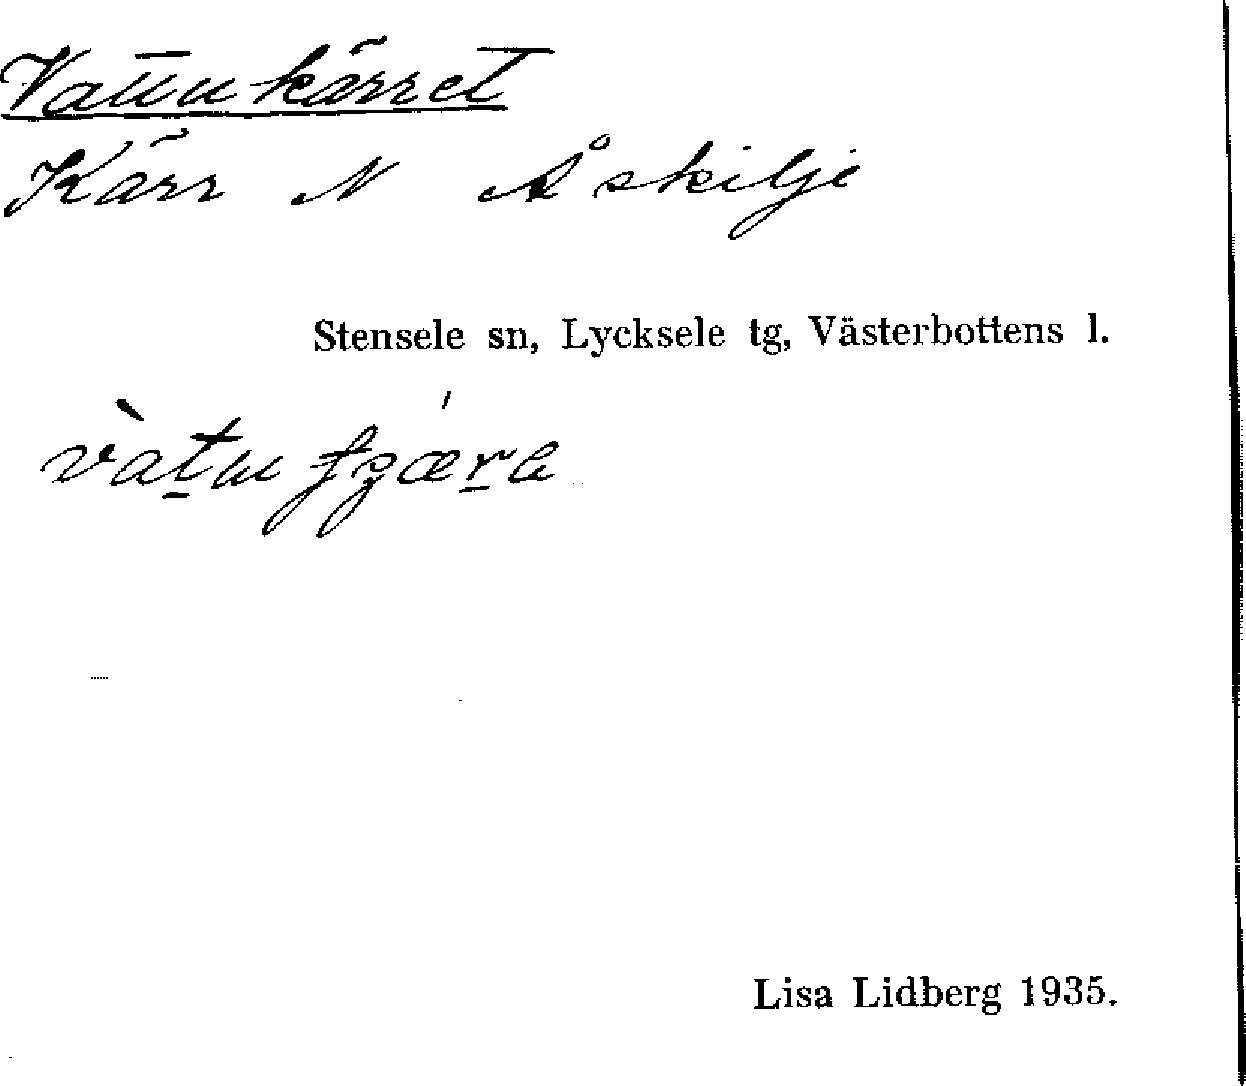 Vattenkärret
Kärr N Åskilje
Stensele sn, Lycksele tg, Västerbottens l.
Lisa Lidberg 1935.